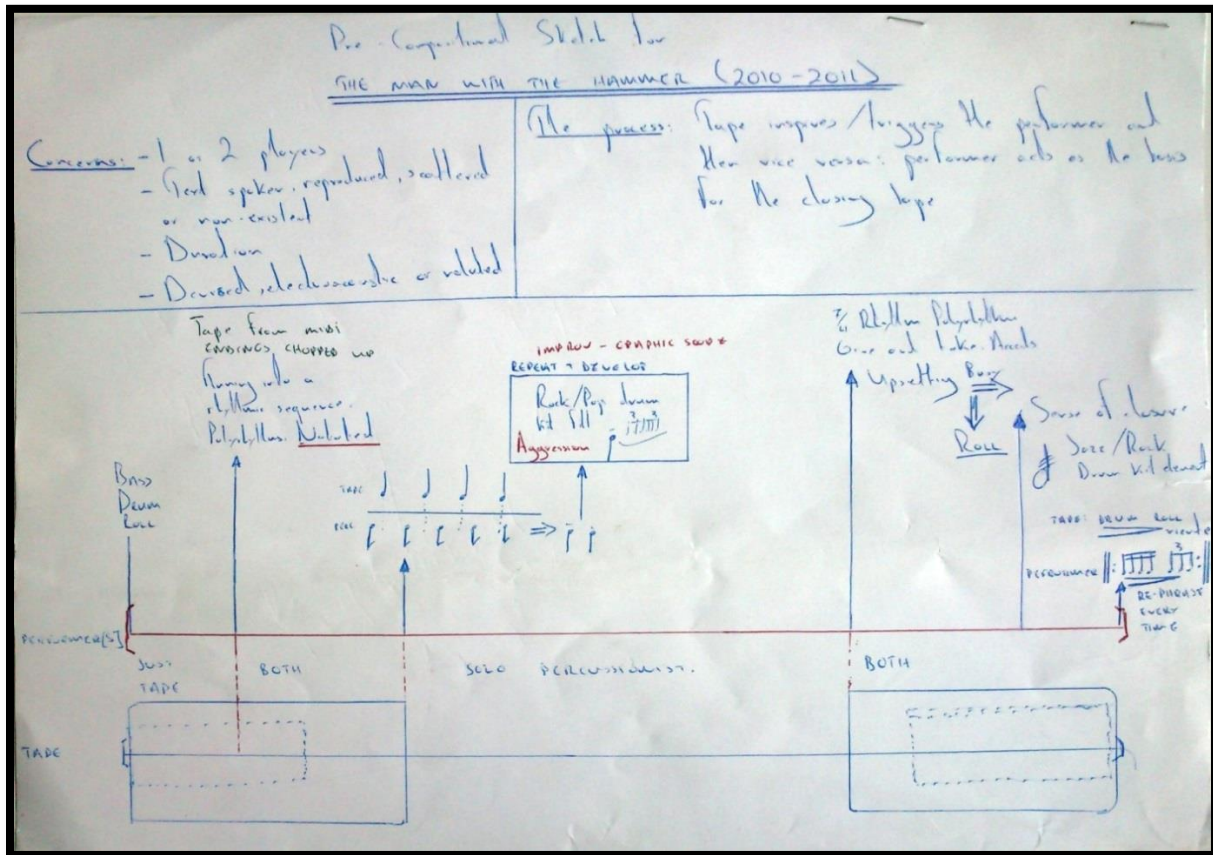 Pre-Compositional Sketch for
THE MAN WITH THE HAMMER (2010-2011)
Concerns: - 1 or 2 players
- Text spoken, reproduced, scattered
or non-existed
- Duration
- Devised, electroacoustic or notated
The process: Tape inspires/triggers the performer and
then vice versa: performer acts as the basis
for the closing tape
Tape from MIDI
ENDINGS CHOPPED UP
Turning into a
rhythmic sequence.
Polyrhythms. Notated
BASS
DRUM
ROLL
TAPE
PERC
IMPROV - GRAPHIC SCORE
REPEAT + DEVELOP
Rock/Pop drum
kit fill
3 3
Aggression
Rhythm Polyrhythm
Give and take. Accents
Upsetting Busy
ROLL
Sense of closure
Jazz/Rock
Drum kit element
TAPE: DRUM ROLL
PERFORMER
3
RE-PHRASE
EVERY
TIME
PERFORMER[S]
JUST
TAPE
BOTH
SOLO PERCUSSIONIST.
BOTH
TAPE